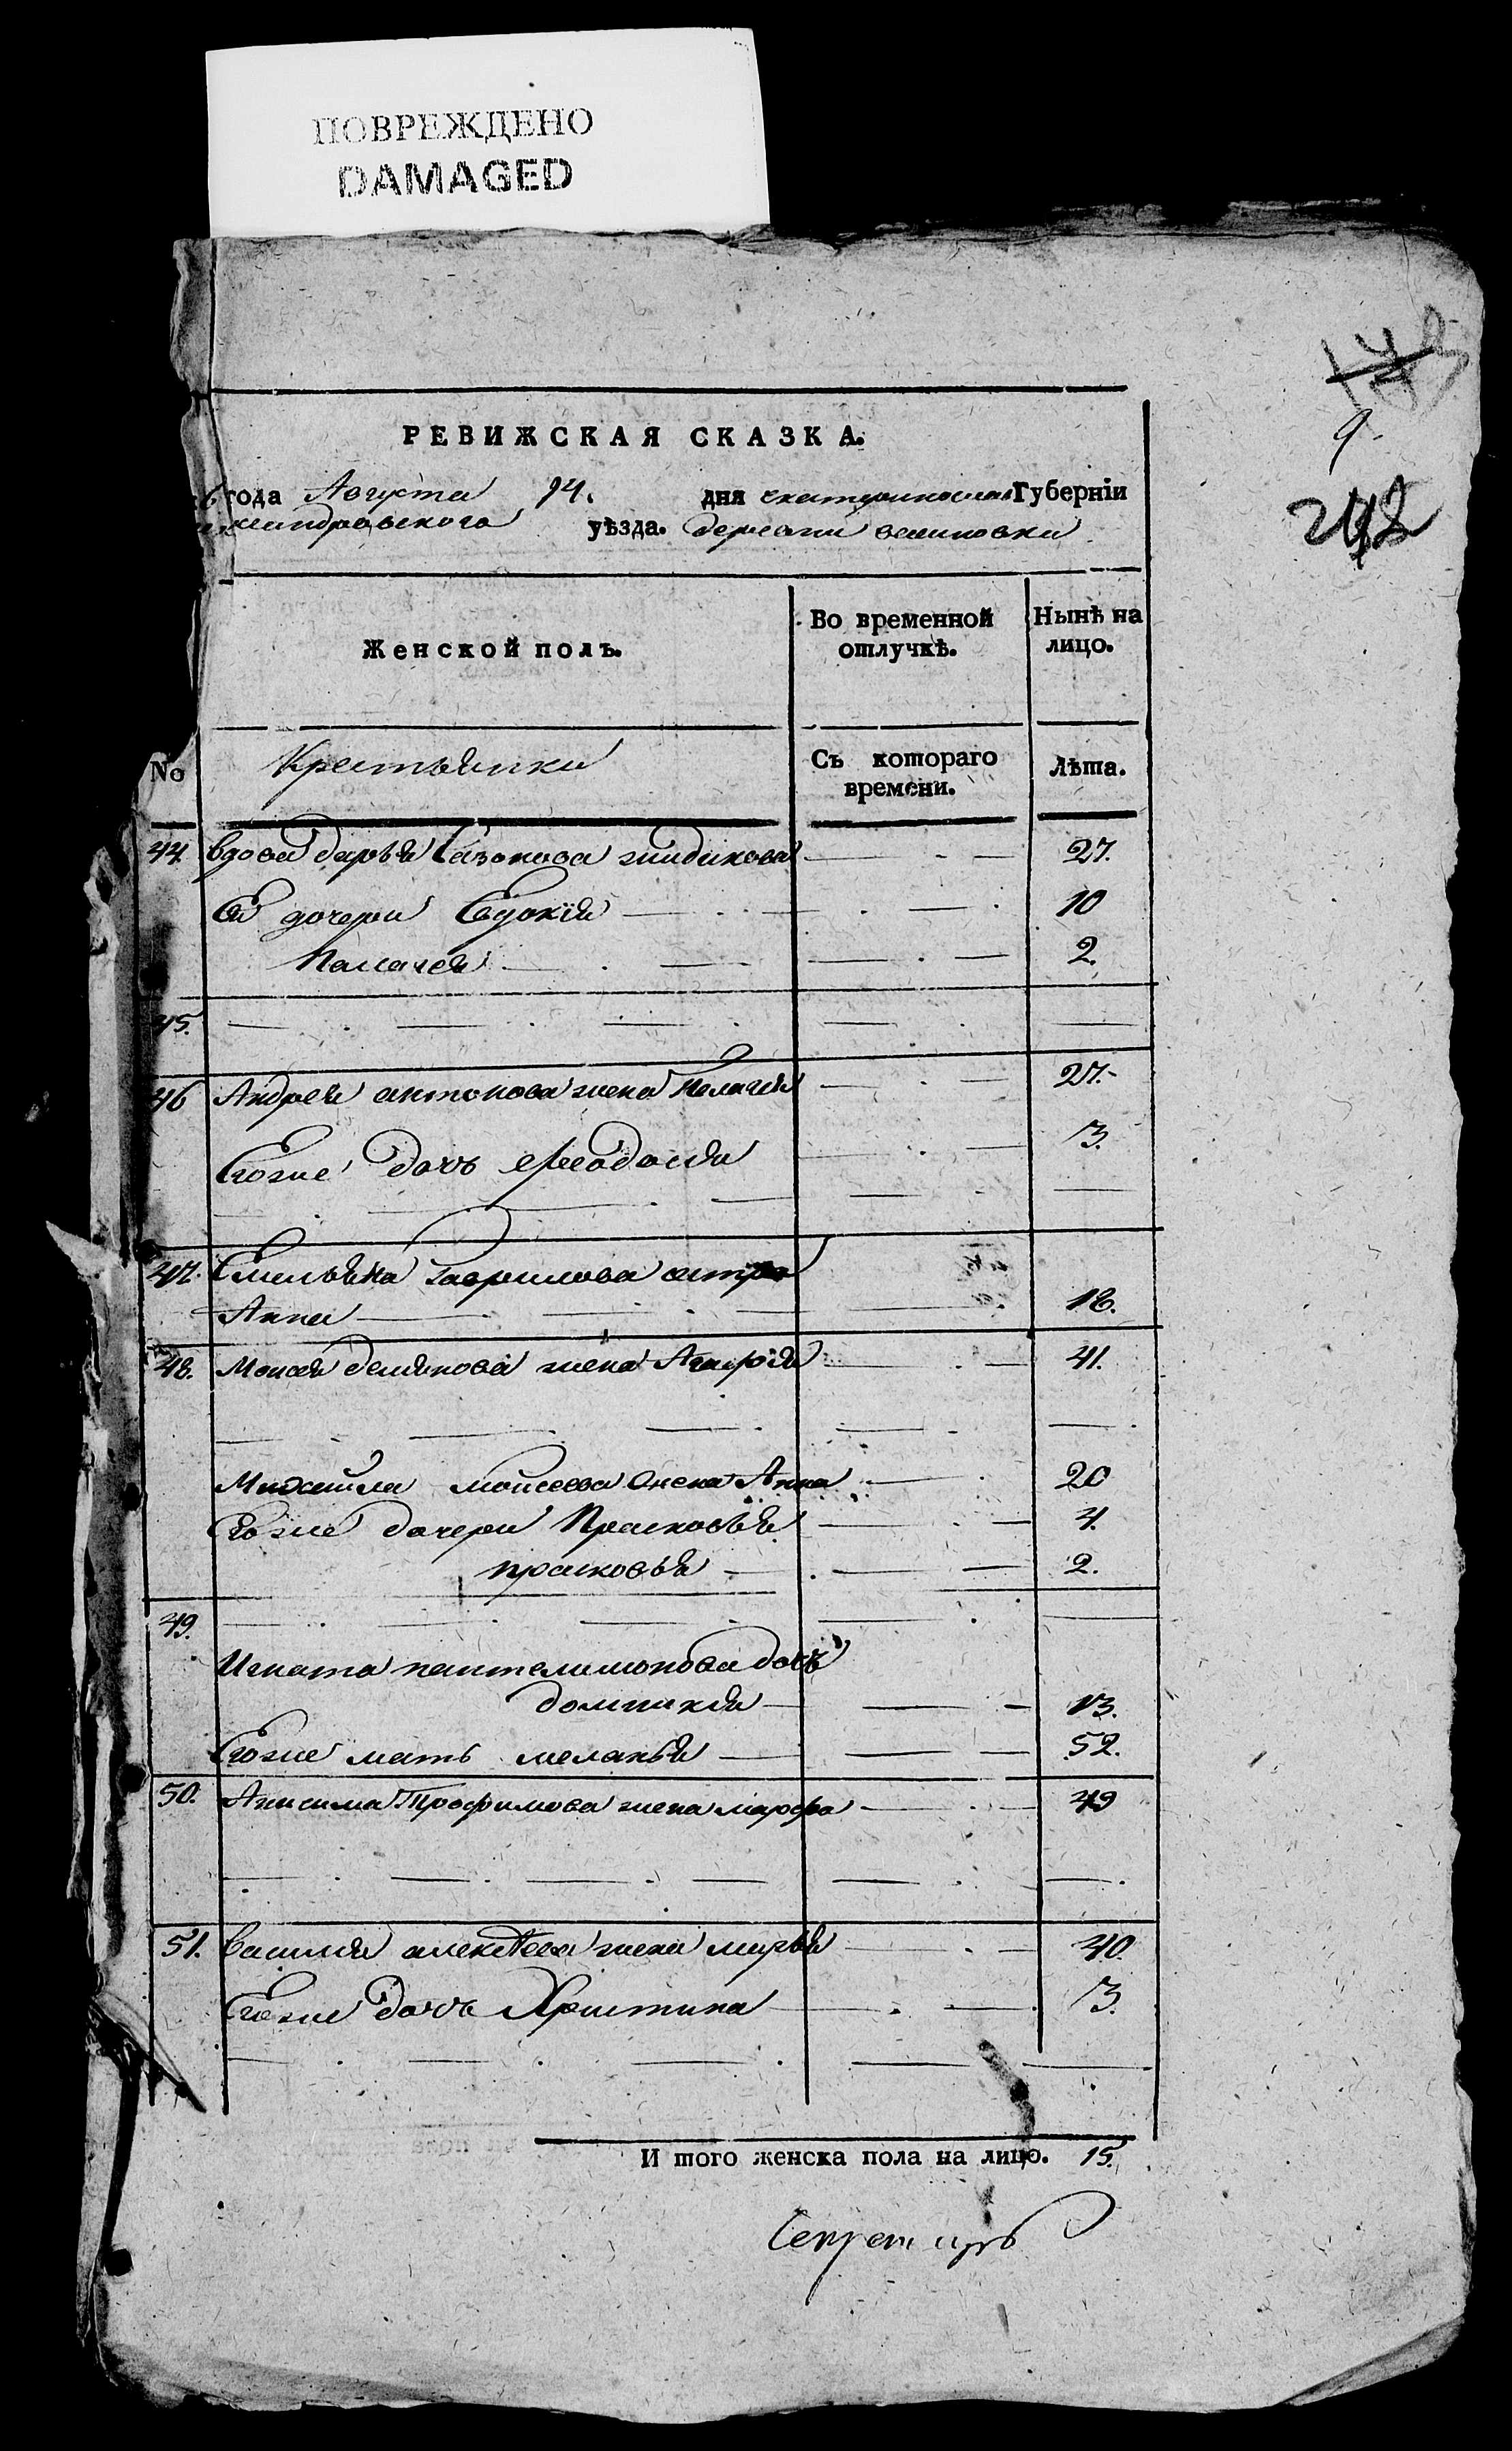 ПОВРЕЖДЕНО
DAMAGED
9.
242
РЕВИЖСКАЯ СКАЗКА.
6 года Августа 14. дня екатеринослав Губернїи
ксандровского уѣзда. деревни
Женской полъ.
Во временной отлучкѣ.
Нынѣ на лицо.
No
Крестьянки
Съ котораго времени.
Лѣта.
44. вдова дарья Сазонова 27.
Ея дочери Евдокїя 10
Палагея 2.
45.
46 Андрея антонова жена Пелагея 27.
Егоже дочь феодосия 3.
47. Емельяна Гаврилова сестра
Анна 18.
48. Моисея демянова жена Агафїя 41.
Михайла моисеева жена Анна 20
Егоже дочери Прасковья 4.
прасковья 2.
49.
Игната пантелимонова дочь
домникия 13.
Егоже мать меланья 52.
50. Анисима Трофимова жена марфа 49
51. василия алексѣева жена марья 40.
Егоже дочь Христина 3.
И того женска пола на лицо. 15.
Секретарь